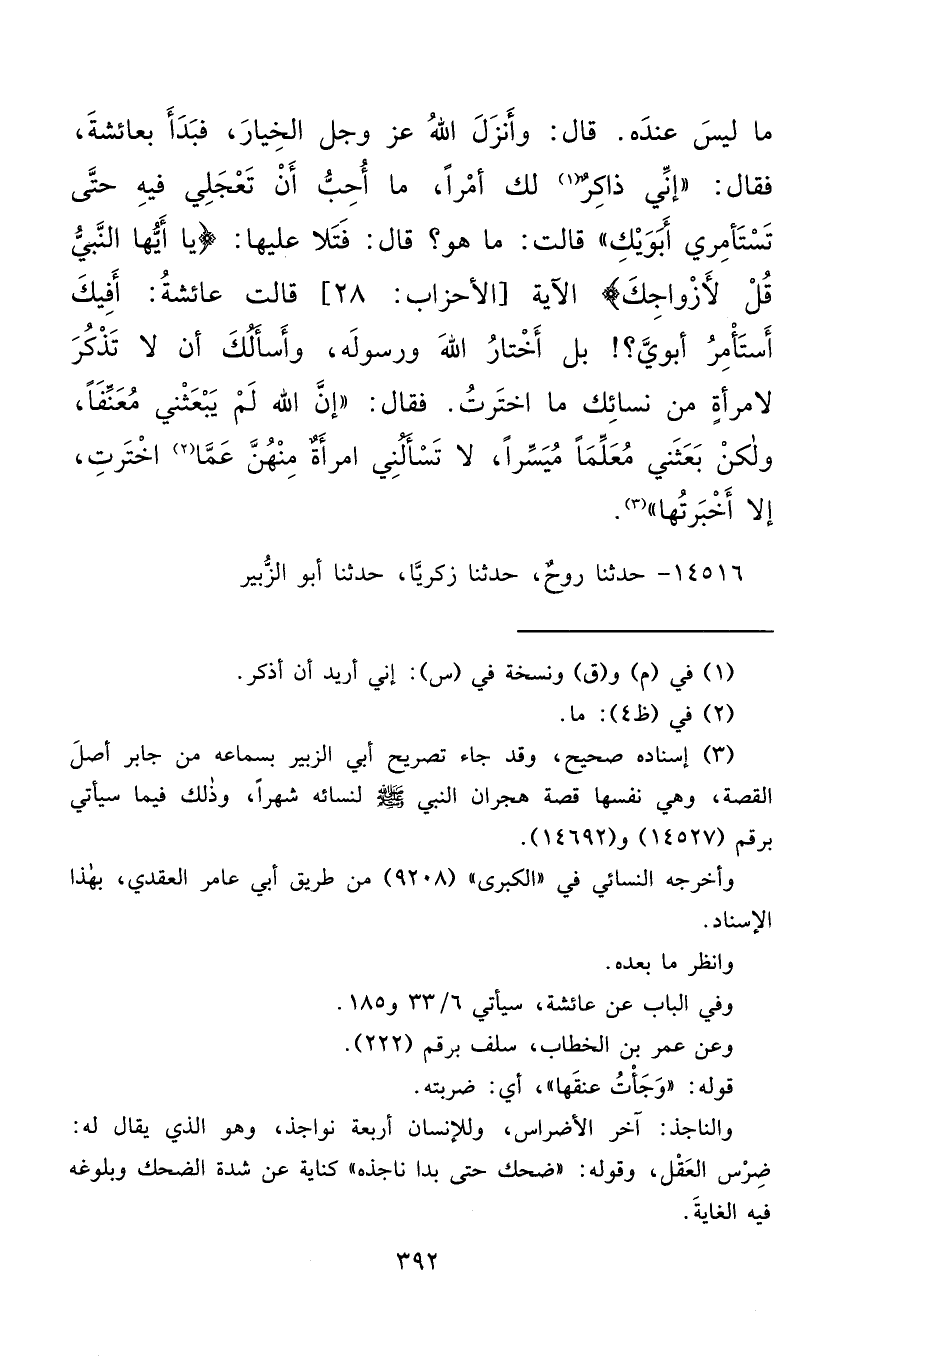 ما ليسَ عندَه. قال: وأَنزَلَ اللهُ عز وجل الخِيارَ، فبَدَأَ بعائشةَ،
فقال: «إنِّي ذاكِرٌ(١) لك أمْراً، ما أُحِبُّ أَنْ تَعْجَلِي فيهِ حتَّى
تَسْتَأمِري أَبَوَيْكِ» قالت: ما هو؟ قال: فَتَلا عليها: ﴿يا أَيُّها النَّبيُّ
قُلْ لأَزْواجِكَ﴾ الآية [الأحزاب: ٢٨] قالت عائشةُ: أَفِيكَ
أَستَأْمِرُ أبويَّ؟! بل أَخْتارُ اللهَ ورسولَه، وأَسأَلُكَ أن لا تَذْكُرَ
لامرأةٍ من نسائِك ما اختَرتُ. فقال: «إنَّ الله لَمْ يَبْعَثْني مُعَنِّفَاً،
ولٰكنْ بَعَثَني مُعَلِّمَاً مُيَسِّراً، لا تَسْأَلُنِي امرأَةٌ مِنْهُنَّ عَمَّا(٢) اخْتَرتِ،
إلا أَخْبَرتُها»(٣).
١٤٥١٦- حدثنا روحٌ، حدثنا زكريَّا، حدثنا أبو الزُّبير
(١) في (م) و(ق) ونسخة في (س): إني أريد أن أذكر.
(٢) في (ظ٤): ما.
(٣) إسناده صحيح، وقد جاء تصريح أبي الزبير بسماعه من جابر أصلَ
القصة، وهي نفسها قصة هجران النبي ﷺ لنسائه شهراً، وذٰلك فيما سيأتي
برقم (١٤٥٢٧) و(١٤٦٩٢).
وأخرجه النسائي في «الكبرى» (٩٢٠٨) من طريق أبي عامر العقدي، بهٰذا
الإسناد.
وانظر ما بعده.
وفي الباب عن عائشة، سيأتي ٣٣/٦ و١٨٥.
وعن عمر بن الخطاب، سلف برقم (٢٢٢).
قوله: «وَجَأْتُ عنقَها»، أي: ضربته.
والناجذ: آخر الأضراس، وللإنسان أربعة نواجذ، وهو الذي يقال له:
ضِرْس العَقْل، وقوله: «ضحك حتى بدا ناجذه» كناية عن شدة الضحك وبلوغه
فيه الغايةَ.
٣٩٢